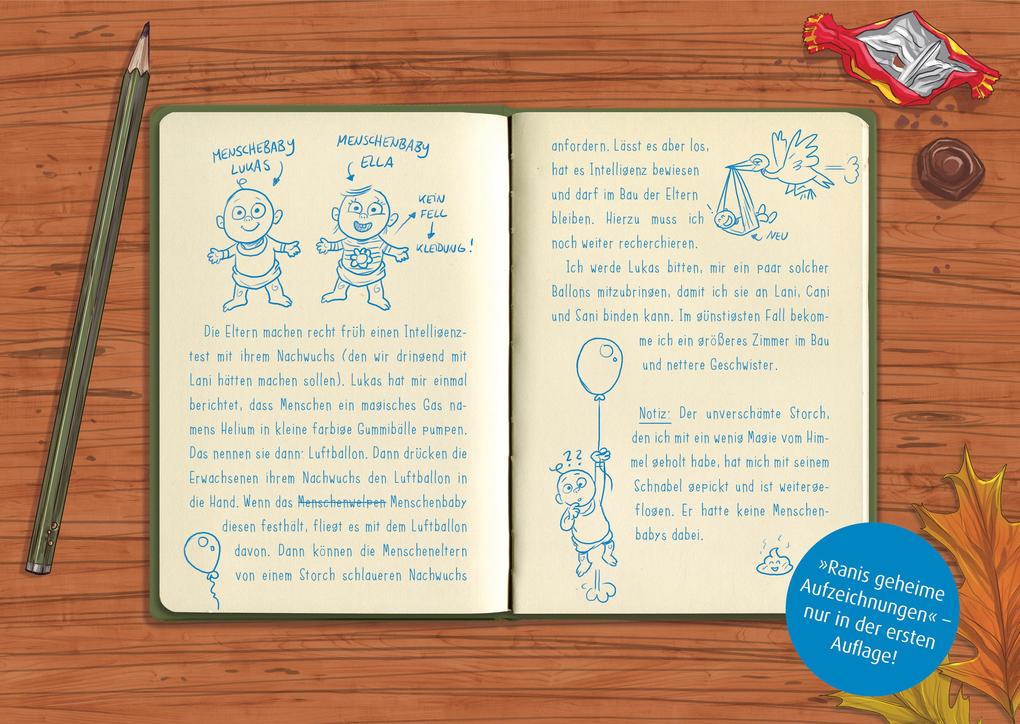 MENSCHEBABY
LUKAS
MENSCHENBABY
ELLA
KEIN
FELL
KLEIDUNG!
Die Eltern machen recht früh einen Intelligenz-
test mit ihrem Nachwuchs (den wir dringend mit
Lani hätten machen sollen). Lukas hat mir einmal
berichtet, dass Menschen ein magisches Gas na-
mens Helium in kleine farbige Gummibälle pumpen.
Das nennen sie dann: Luftballon. Dann drücken die
Erwachsenen ihrem Nachwuchs den Luftballon in
die Hand. Wenn das Menschenwelpen Menschenbaby
diesen festhält, fliegt es mit dem Luftballon
davon. Dann können die Menscheneltern
von einem Storch schlaueren Nachwuchs
anfordern. Lässt es aber los,
hat es Intelligenz bewiesen
und darf im Bau der Eltern
bleiben. Hierzu muss ich
noch weiter recherchieren.
NEU
Ich werde Lukas bitten, mir ein paar solcher
Ballons mitzubringen, damit ich sie an Lani, Cani
und Sani binden kann. Im günstigsten Fall bekom-
me ich ein größeres Zimmer im Bau
und nettere Geschwister.
Notiz: Der unverschämte Storch,
den ich mit ein wenig Magie vom Him-
mel geholt habe, hat mich mit seinem
Schnabel gepickt und ist weiterge-
flogen. Er hatte keine Menschen-
babys dabei.
??
»Ranis geheime
Aufzeichnungen« –
nur in der ersten
Auflage!